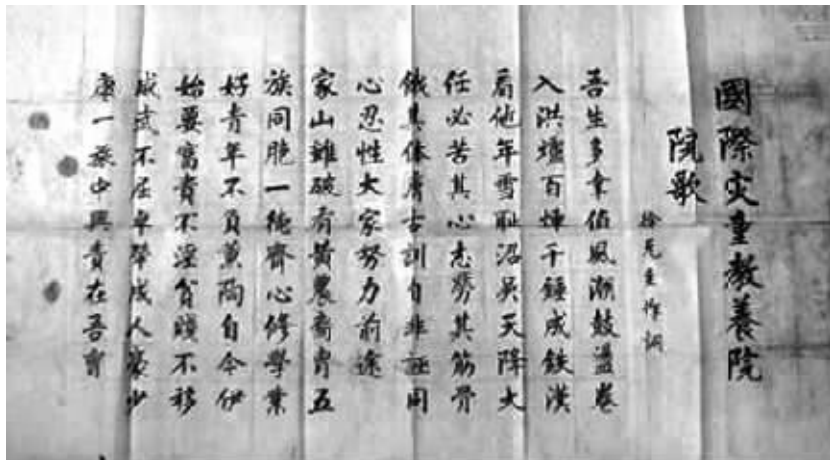 國際灾童教養院
院歌
徐克圭作詞
吾生多幸值風潮鼓盪卷
入洪壚百煉千錘成鉄漢
看他年雪耻沼吳天降大
任必苦其心志勞其筋骨
餓其体膚古訓自非誣用
心忍性大家努力前途
家山雖破有黃農裔胄五
族同胞一德齊心修學業
好青年不負薰陶自今伊
始要富貴不淫貧賤不移
威武不屈卓犖成人 少
康一旅中興責在吾曹